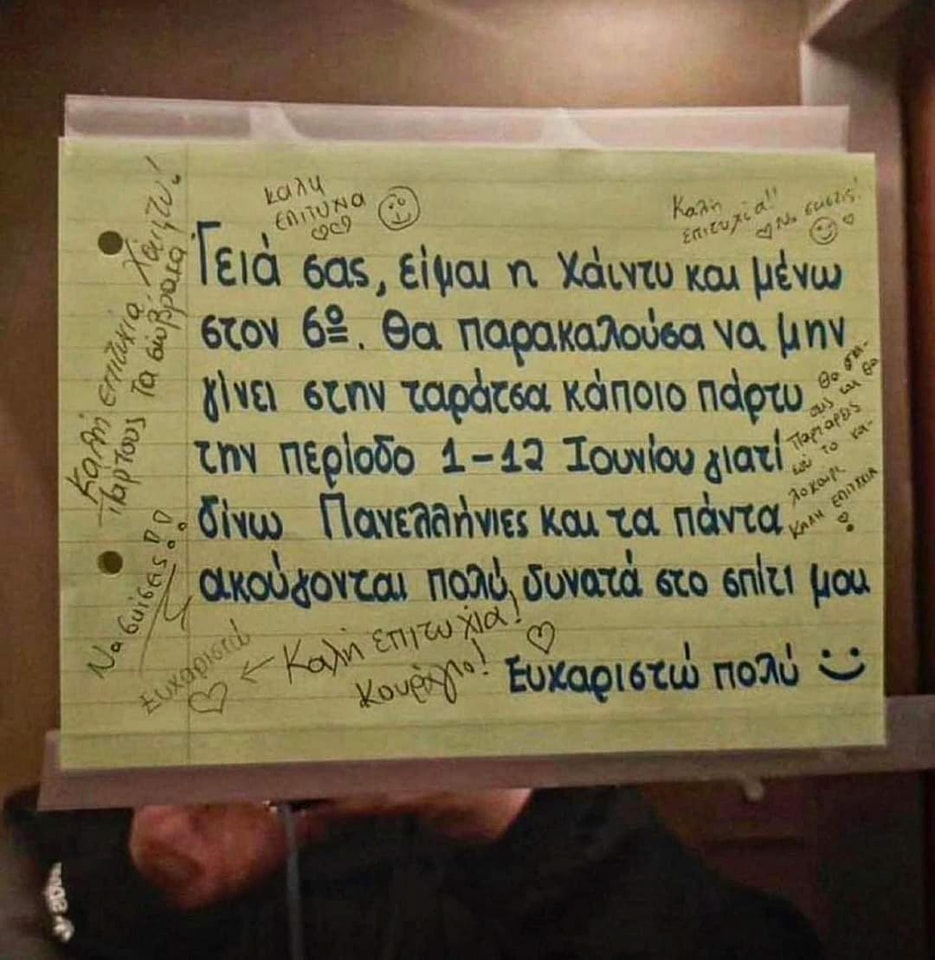 καλη
επιτυχια
Καλη
επιτυχία!!
Να σκίσεις!
Γειά σας, είμαι η Χάιντυ και μένω
στον 6º. Θα παρακαλούσα να μην
γίνει στην ταράτσα κάποιο πάρτυ
την περίοδο 1-12 Ιουνίου γιατί
δίνω Πανελλήνιες και τα πάντα
ακούγονται πολύ δυνατά στο σπίτι μου
Ευχαριστώ πολύ :)
Καλή επιτυχία Χάιντυ!
Πάρτους τα σώβρακα
Να σκίσεις!!
Ευχαριστώ
← Καλή επιτυχία!
Κουράγιο!
Θα σκί-
σεις και θα
παρτάρεις
όλο το κα-
λοκαίρι
Καλη επιτυχια!